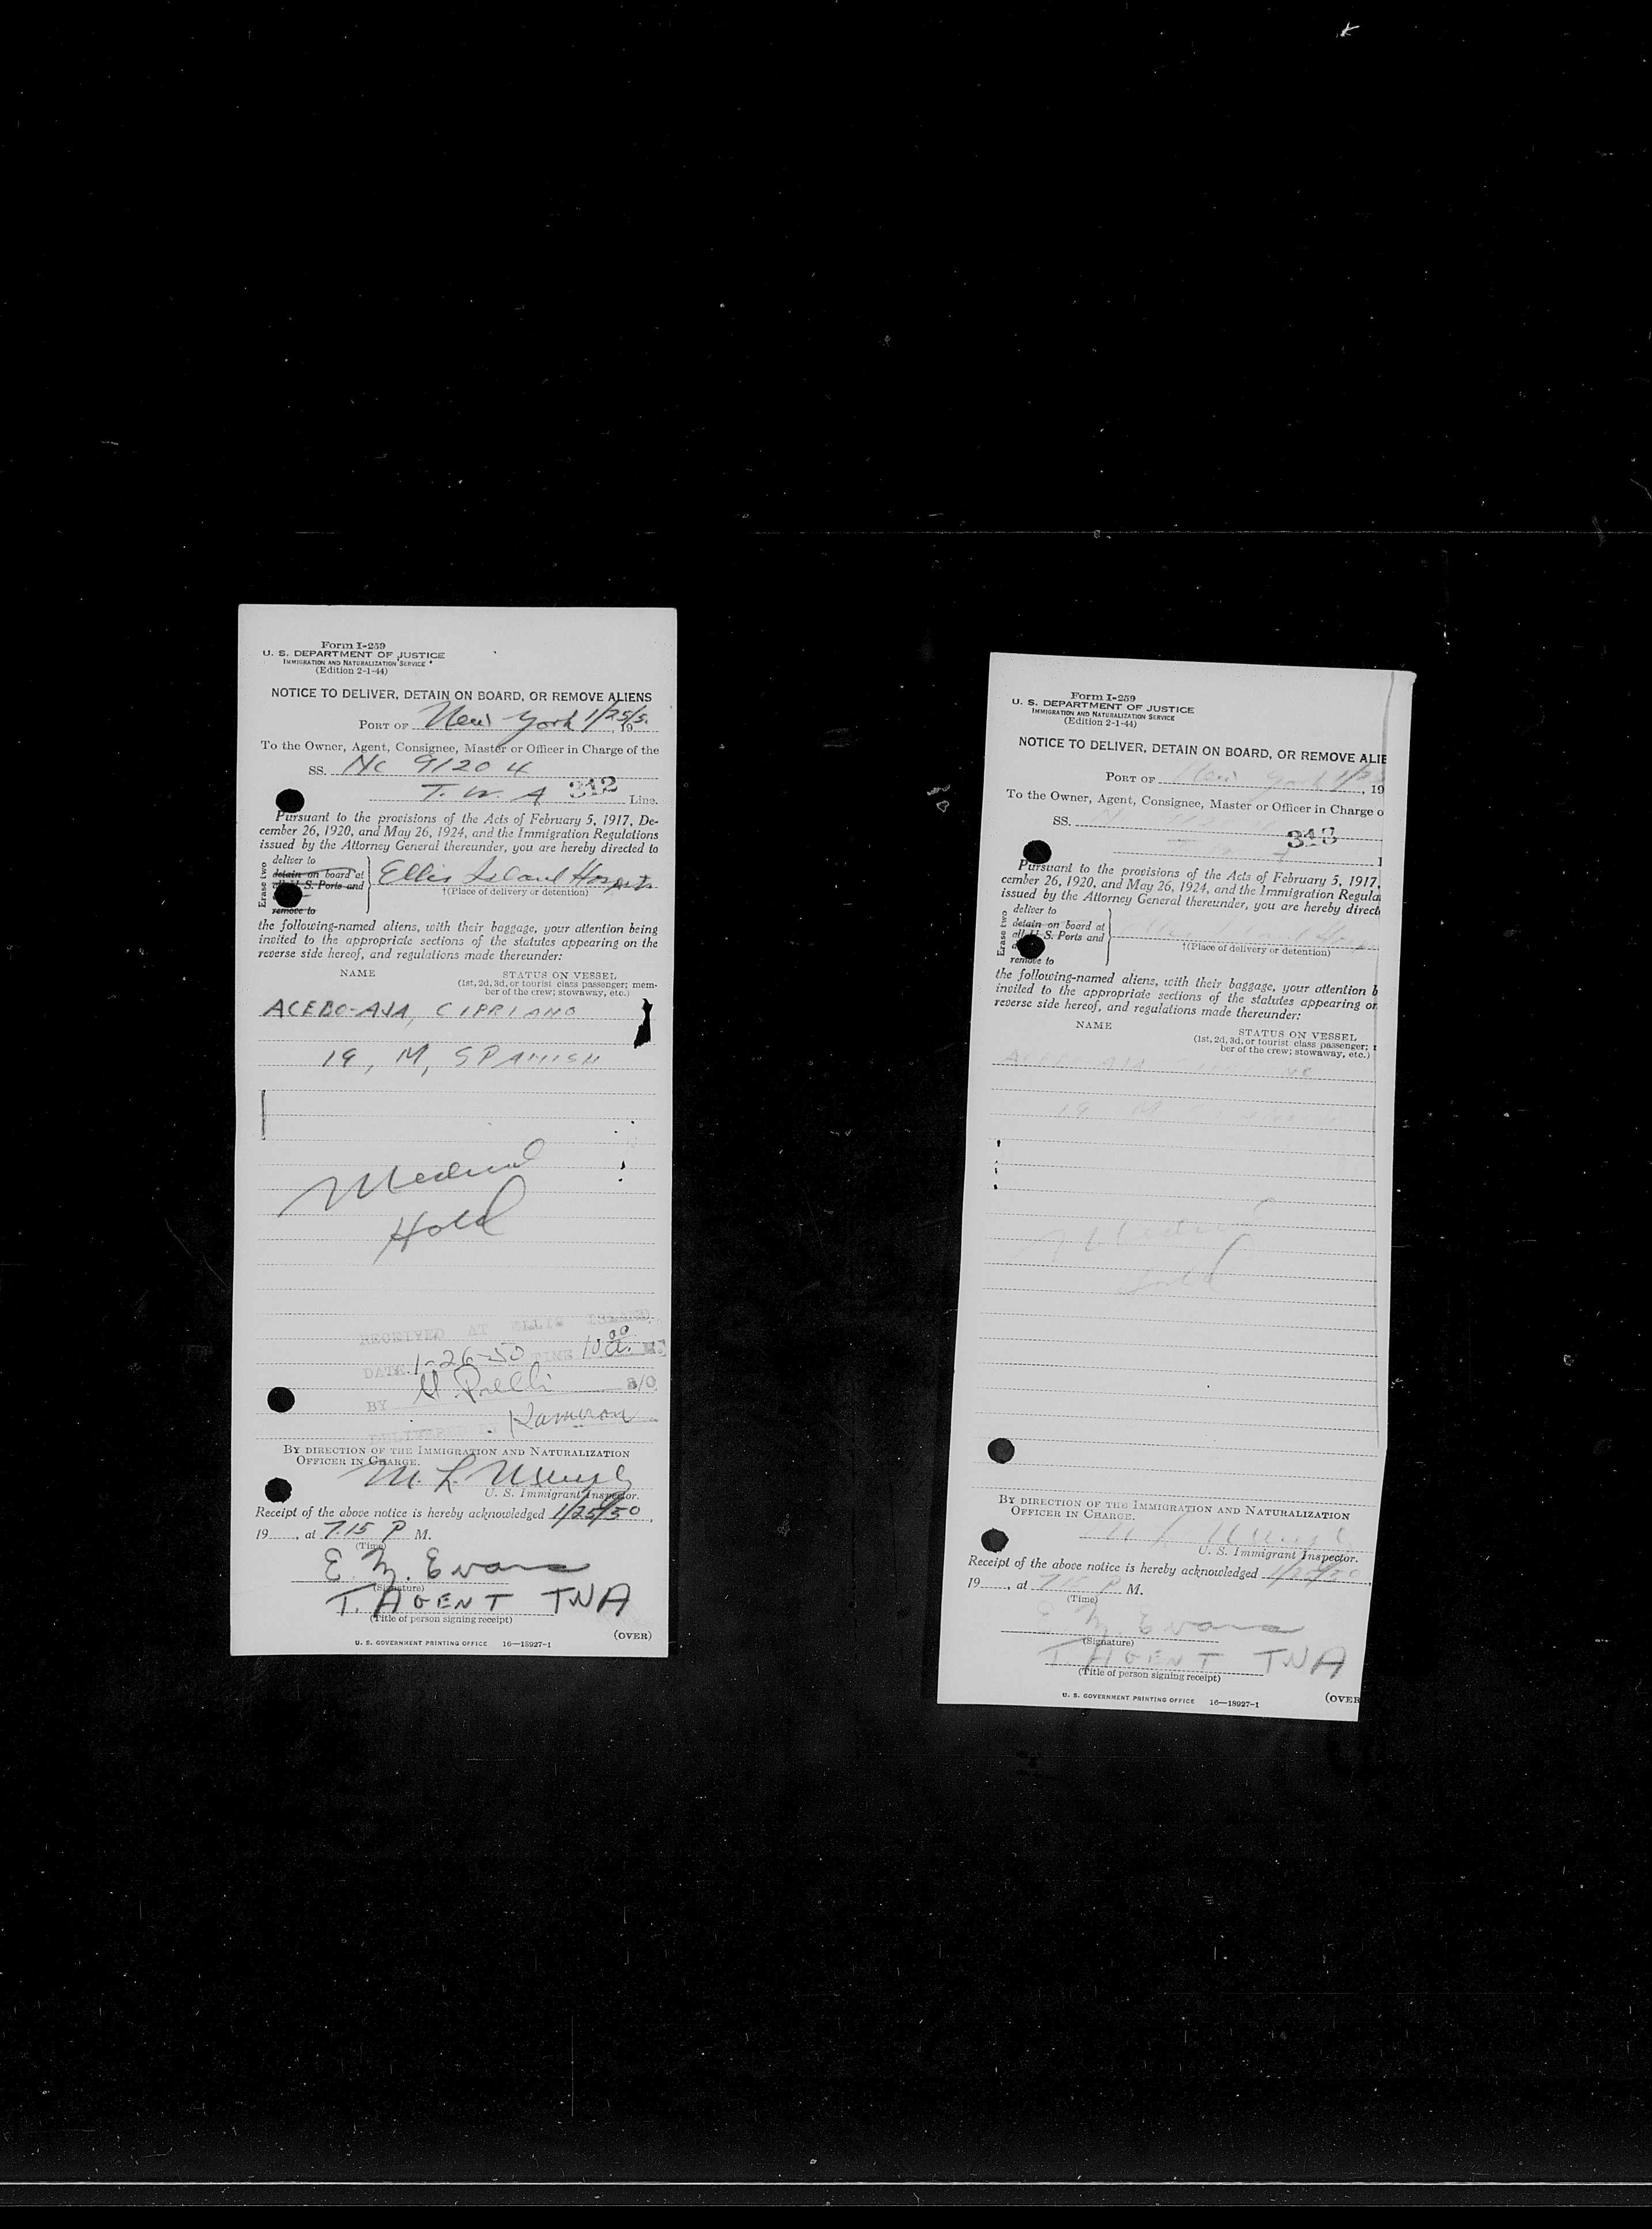 Form I-259
U. S. DEPARTMENT OF JUSTICE
IMMIGRATION AND NATURALIZATION SERVICE
(Edition 2-1-44)
NOTICE TO DELIVER, DETAIN ON BOARD, OR REMOVE ALIENS
PORT OF New York 1/25/5 , 19
To the Owner, Agent, Consignee, Master or Officer in Charge of the
SS. NC 91204
T. W. A 312 Line.
Pursuant to the provisions of the Acts of February 5, 1917, De-
cember 26, 1920, and May 26, 1924, and the Immigration Regulations
issued by the Attorney General thereunder, you are hereby directed to
Erase two
deliver to
detain on board at
all U. S. Ports and
remove to
Ellis Island
†(Place of delivery or detention)
the following-named aliens, with their baggage, your attention being
invited to the appropriate sections of the statutes appearing on the
reverse side hereof, and regulations made thereunder:
NAME STATUS ON VESSEL
(1st, 2d, 3d, or tourist class passenger; mem-
ber of the crew; stowaway, etc.)
ACEBO-AJA, CIPRIANO
19, M, SPANISH
Medical
Hold
RECEIVED AT ELLIS ISLAND
DATE 1-26-50 TIME 10 00 a. M.
BY S/O
DELIVERED
BY DIRECTION OF THE IMMIGRATION AND NATURALIZATION
OFFICER IN CHARGE.
M. L.
U. S. Immigrant Inspector.
Receipt of the above notice is hereby acknowledged 1/25/50,
19 , at 7.15 P M.
(Time)
E. M. Evans
(Signature)
T. AGENT TWA
(Title of person signing receipt)
U. S. GOVERNMENT PRINTING OFFICE 16—18927-1 (OVER)
Form I-259
U. S. DEPARTMENT OF JUSTICE
IMMIGRATION AND NATURALIZATION SERVICE
(Edition 2-1-44)
NOTICE TO DELIVER, DETAIN ON BOARD, OR REMOVE ALIE
PORT OF New York 1/25 , 19
To the Owner, Agent, Consignee, Master or Officer in Charge o
SS.
313
Pursuant to the provisions of the Acts of February 5, 1917,
cember 26, 1920, and May 26, 1924, and the Immigration Regula
issued by the Attorney General thereunder, you are hereby direct
Erase two
deliver to
detain on board at
all U. S. Ports and
remove to
Ellis Island
†(Place of delivery or detention)
the following-named aliens, with their baggage, your attention b
invited to the appropriate sections of the statutes appearing on
reverse side hereof, and regulations made thereunder:
NAME STATUS ON VESSEL
(1st, 2d, 3d, or tourist class passenger;
ber of the crew; stowaway, etc.)
ACEBO-AJA CIPRIANO
19 M
Medical
Hold
BY DIRECTION OF THE IMMIGRATION AND NATURALIZATION
OFFICER IN CHARGE.
M L
U. S. Immigrant Inspector.
Receipt of the above notice is hereby acknowledged 1/25/50,
19 , at 7.15 P M.
(Time)
E. M. Evans
(Signature)
T. AGENT TWA
(Title of person signing receipt)
U. S. GOVERNMENT PRINTING OFFICE 16—18927-1 (OVER